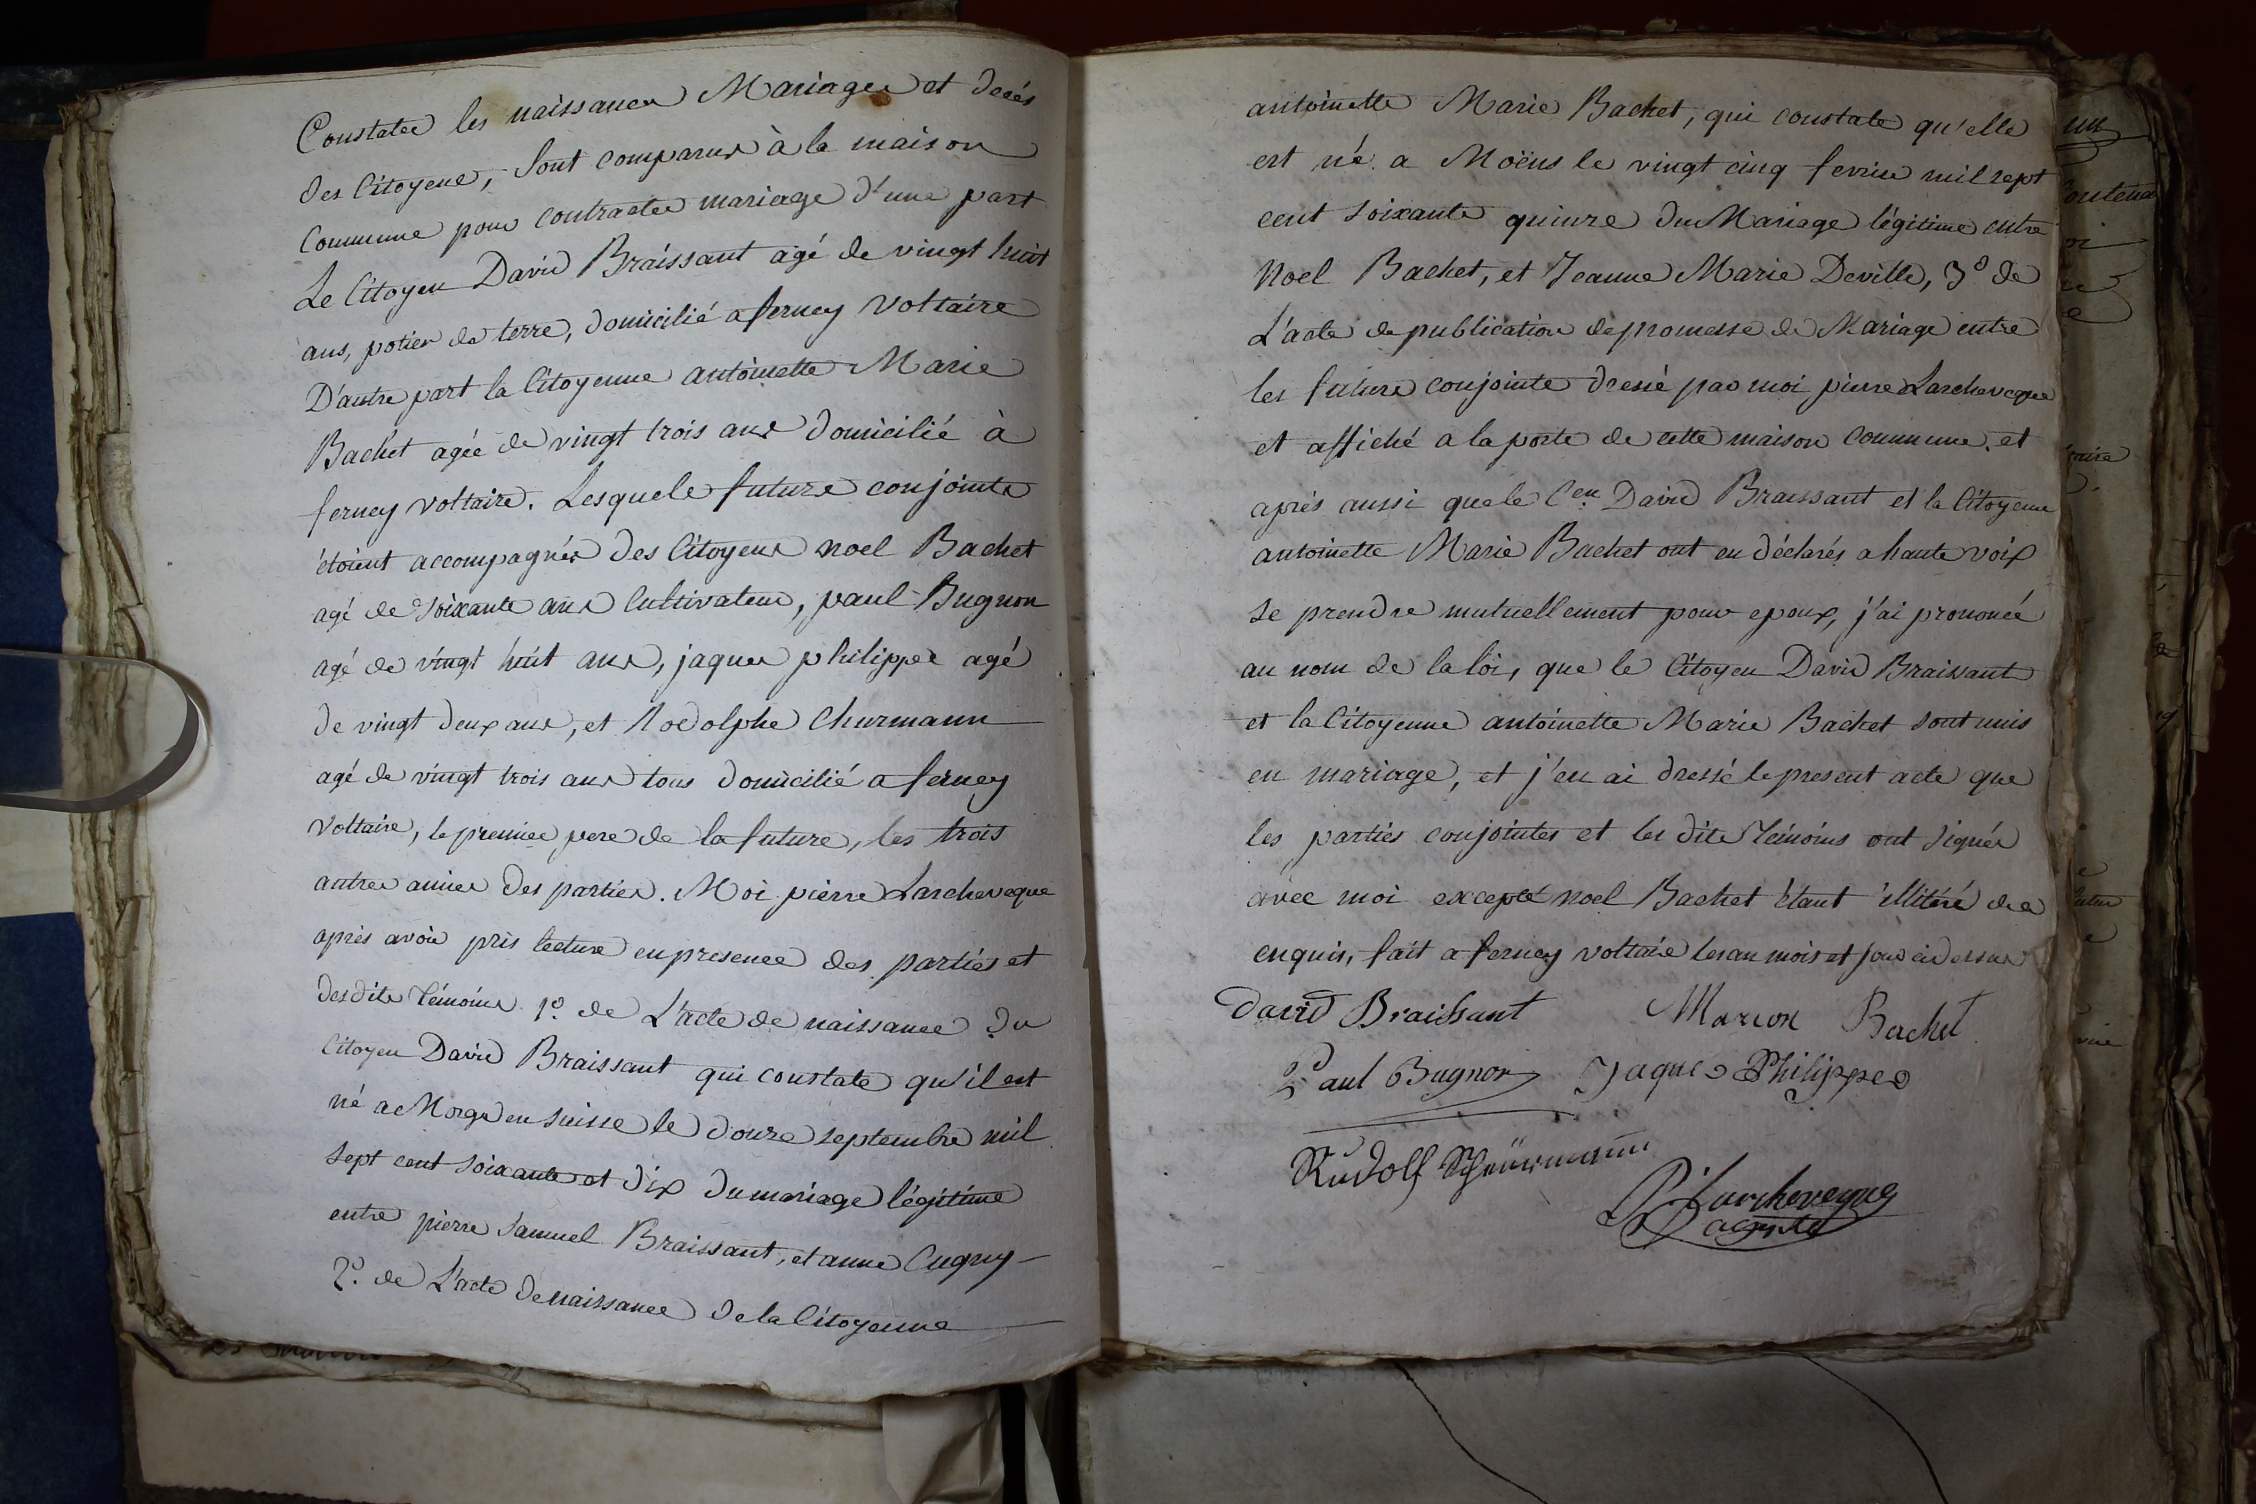 Constater les naissances Mariages et decés
des Citoyens, Sont comparus à la maison
Commune pour contracter mariage d'une part
Le Citoyen David Braissant agé de vingt huit
ans, potier de terre, domicilié a ferney Voltaire
D'autre part la Citoyenne antoinette Marie
Bachet agée de vingt trois ans domicilié à
ferney voltaire. Lesquels futurs conjoints
étoient accompagnés des Citoyens noel Bachet
agé de soixante ans Cultivateur, paul Bugnon
agé de vingt huit ans, jaques philippe agé
de vingt deux ans, et Rodolphe Churmann
agé de vingt trois ans tous domicilié a ferney
Voltaire, le premier pere de la future, les trois
autres amies des parties. Moi pierre Larcheveque
après avoir pris lecture en presence des parties et
des dits témoins 1.º de L'acte de naissance du
Citoyen David Braissant qui constate qu'il est
né a Morge en Suisse le douze septembre mil
Sept cent soixante et dix du mariage légitime
entre pierre Samuel Braissant, et anne Cugny
2.º de L'acte de naissance de la Citoyenne
antoinette Marie Bachet, qui constate qu'elle
est né a Moëns le vingt cinq fevrier mil sept
cent soixante quinze du Mariage légitime entre
Noel Bachet, et Jeanne Marie Deville, 3º de
L'acte de publication de promesse de Mariage entre
les futurs conjoints dressé par moi pierre Larcheveque
et affiché a la porte de cette maison commune, et
après aussi que le C.en David Braissant et la Citoyenne
antoinette Marie Bachet ont eu déclarés a haute voix
se prendre mutuellement pour epoux, j'ai prononcé
au nom de la loi, que le Citoyen David Braissant
et la Citoyenne antoinette Marie Bachet sont unis
en mariage, et j'en ai dressé le present acte que
les parties conjointes et les dits Témoins ont signés
avec moi excepté noel Bachet étant illitéré de ce
enquis, fait a ferney voltaire les an mois et jour ci dessus
David Braissant Marion Bachet
Paul Bugnon Jaques Philippe
Rudolf Scheürmann
P. Larcheveque
agente